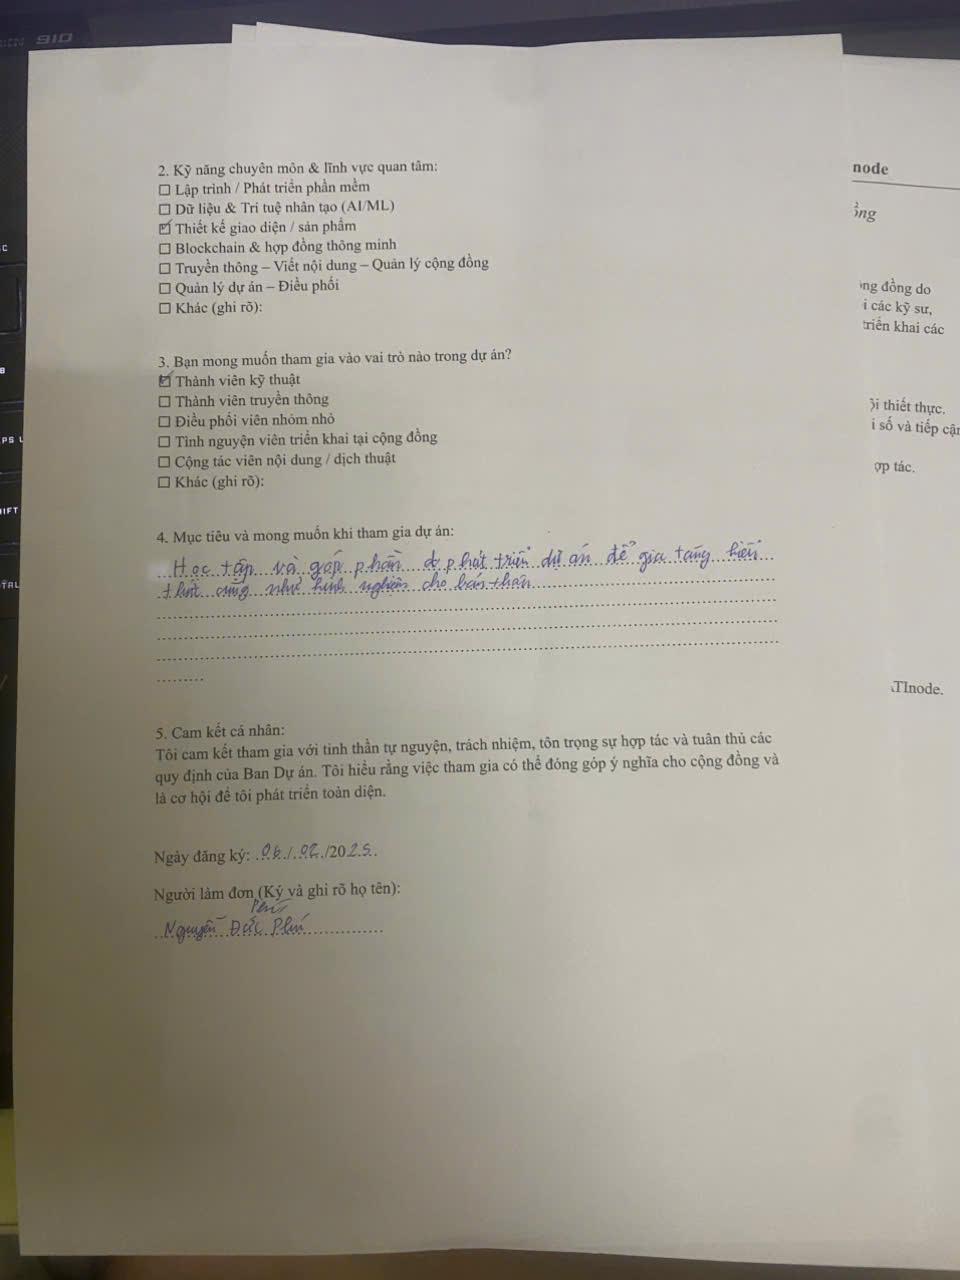 910
2. Kỹ năng chuyên môn & lĩnh vực quan tâm:
☐ Lập trình / Phát triển phần mềm
☐ Dữ liệu & Trí tuệ nhân tạo (AI/ML)
☑ Thiết kế giao diện / sản phẩm
☐ Blockchain & hợp đồng thông minh
☐ Truyền thông – Viết nội dung – Quản lý cộng đồng
☐ Quản lý dự án – Điều phối
☐ Khác (ghi rõ):
3. Bạn mong muốn tham gia vào vai trò nào trong dự án?
☑ Thành viên kỹ thuật
☐ Thành viên truyền thông
☐ Điều phối viên nhóm nhỏ
☐ Tình nguyện viên triển khai tại cộng đồng
☐ Cộng tác viên nội dung / dịch thuật
☐ Khác (ghi rõ):
4. Mục tiêu và mong muốn khi tham gia dự án:
Học tập và góp phần phát triển dự án để gia tăng hiểu
cũng như kinh nghiệm cho bản thân
5. Cam kết cá nhân:
Tôi cam kết tham gia với tinh thần tự nguyện, trách nhiệm, tôn trọng sự hợp tác và tuân thủ các
quy định của Ban Dự án. Tôi hiểu rằng việc tham gia có thể đóng góp ý nghĩa cho cộng đồng và
là cơ hội để tôi phát triển toàn diện.
Ngày đăng ký: 06/02/2025
Người làm đơn (Ký và ghi rõ họ tên):
Nguyễn Đức Phú
node
ồng
ng đồng do
i các kỹ sư,
triển khai các
ội thiết thực.
i số và tiếp cận
ợp tác.
TInode.